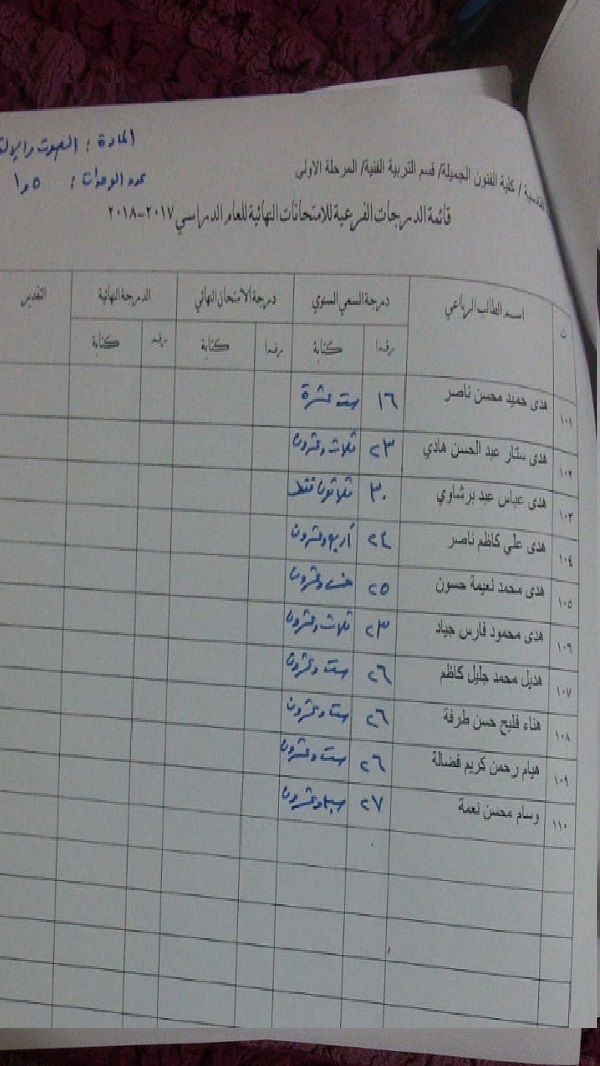 المادة : الصوت والإلقاء
عدد الوحدات : ١٫٥
القادسية / كلية الفنون الجميلة/ قسم التربية الفنية/ المرحلة الاولى
قائمة الدرجات الفرعية للامتحانات النهائية للعام الدراسي ٢٠١٧-٢٠١٨
ت اسم الطالب الرباعي درجة السعي السنوي درجة الامتحان النهائي الدرجة النهائية التقدير
رقما كتابة رقما كتابة رقما كتابة
١٠١ هدى حميد محسن ناصر ١٦ ست عشرة
١٠٢ هدى ستار عبد الحسن هادي ٢٣ ثلاث وعشرون
١٠٣ هدى عباس عبد برشاوي ٣٠ ثلاثون فقط
١٠٤ هدى علي كاظم ناصر ٢٤ أربع وعشرون
١٠٥ هدى محمد نعيمة حسون ٢٥ خمس وعشرون
١٠٦ هدى محمود فارس جياد ٢٣ ثلاث وعشرون
١٠٧ هديل محمد جليل كاظم ٢٦ ست وعشرون
١٠٨ هناء فليح حسن طرفة ٢٦ ست وعشرون
١٠٩ هيام رحمن كريم فضالة ٢٦ ست وعشرون
١١٠ وسام محسن نعمة ٢٧ سبع وعشرون